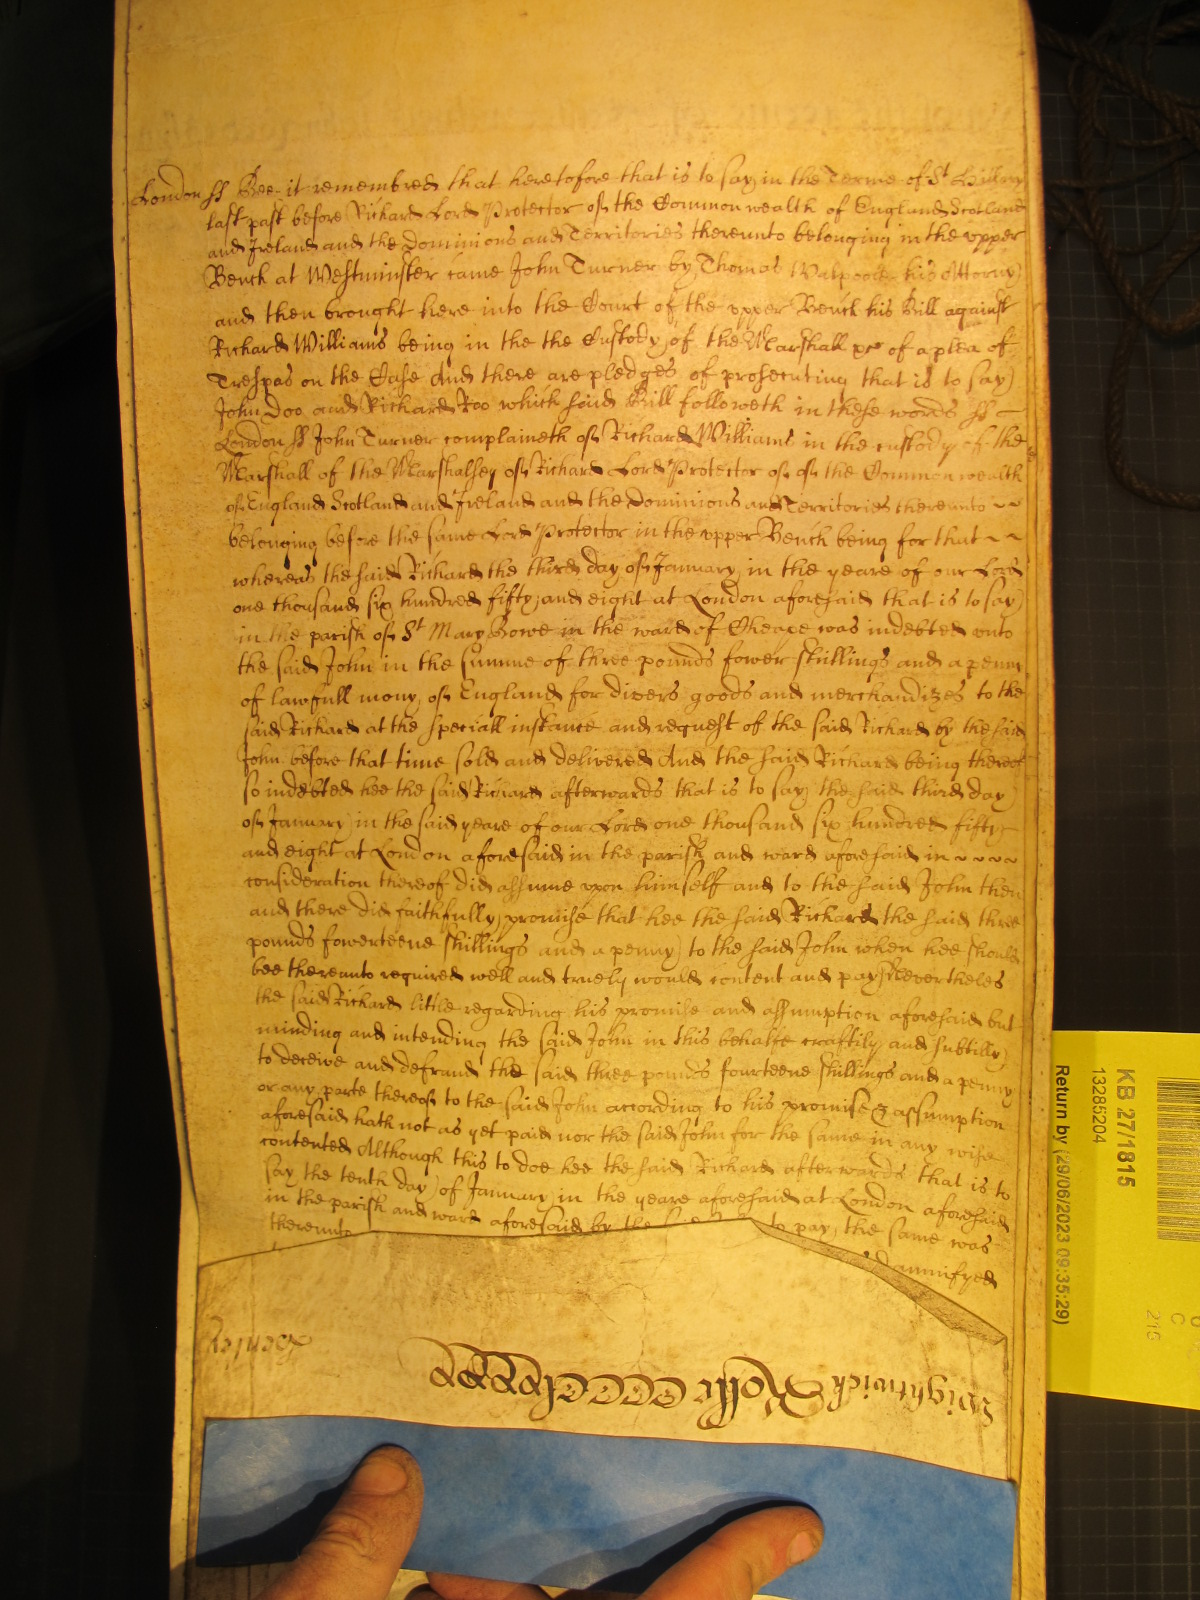 London ss Bee it remembred that heretofore that is to say in the Terme of St Hillary
last past before Richard Lord Protector of the Common wealth of England Scotland
and Ireland and the Dominions and Territories thereunto belonging in the vpper
Bench at Westminster came John Turner by Thomas Walpoole his Attorny
and then brought here into the Court of the vpper Bench his Bill against
Richard Williams being in the the Custody of the Marshall &c of a plea of
Trespas on the Case And there are pledges of prosecuting that is to say
John Doo and Richard Roo which said Bill followeth in these words ss
London ss John Turner complaineth of Richard Williams in the custody of the
Marshall of the Marshalsey of Richard Lord Protector of of the Common wealth
of England Scotland and Ireland and the Dominions and Territories thereunto
belonging before the same Lord Protector in the vpper Bench being for that
whereas the said Richard the third day of January in the yeare of our Lord
one thousand six hundred fifty and eight at London aforesaid that is to say
in the parish of St Mary Bowe in the ward of Cheape was indebted vnto
the said John in the summe of three pounds fower shillings and a penny
of lawfull mony of England for divers goods and merchandizes to the
said Richard at the speciall instance and request of the said Richard by the said
John before that time sold and delivered And the said Richard being thereof
so indebted hee the said Richard afterwards that is to say the said third day
of January in the said yeare of our Lord one thousand six hundred fifty
and eight at London aforesaid in the parish and ward aforesaid in
consideration thereof did assume vpon himself and to the said John then
and there did faithfully promise that hee the said Richard the said three
pounds fowerteene shillings and a penny to the said John when hee should
bee thereunto required well and truely would content and pay Nevertheles
the said Richard little regarding his promise and assumption aforesaid but
minding and intending the said John in this behalfe craftily and subtilly
to deceive and defraud the said three pounds fourteene shillings and a penny
or any parte thereof to the said John according to his promise & assumption
aforesaid hath not as yet paid nor the said John for the same in any wise
contented Although this to doe hee the said Richard afterwards that is to
say the tenth day of January in the yeare aforesaid at London aforesaid
in the parish and ward aforesaid by the said to pay the same was
thereunto damnifyed
Wightwick Rolle
KB 27/1815
13285204
Return by (29/06/2023 09:35:29)